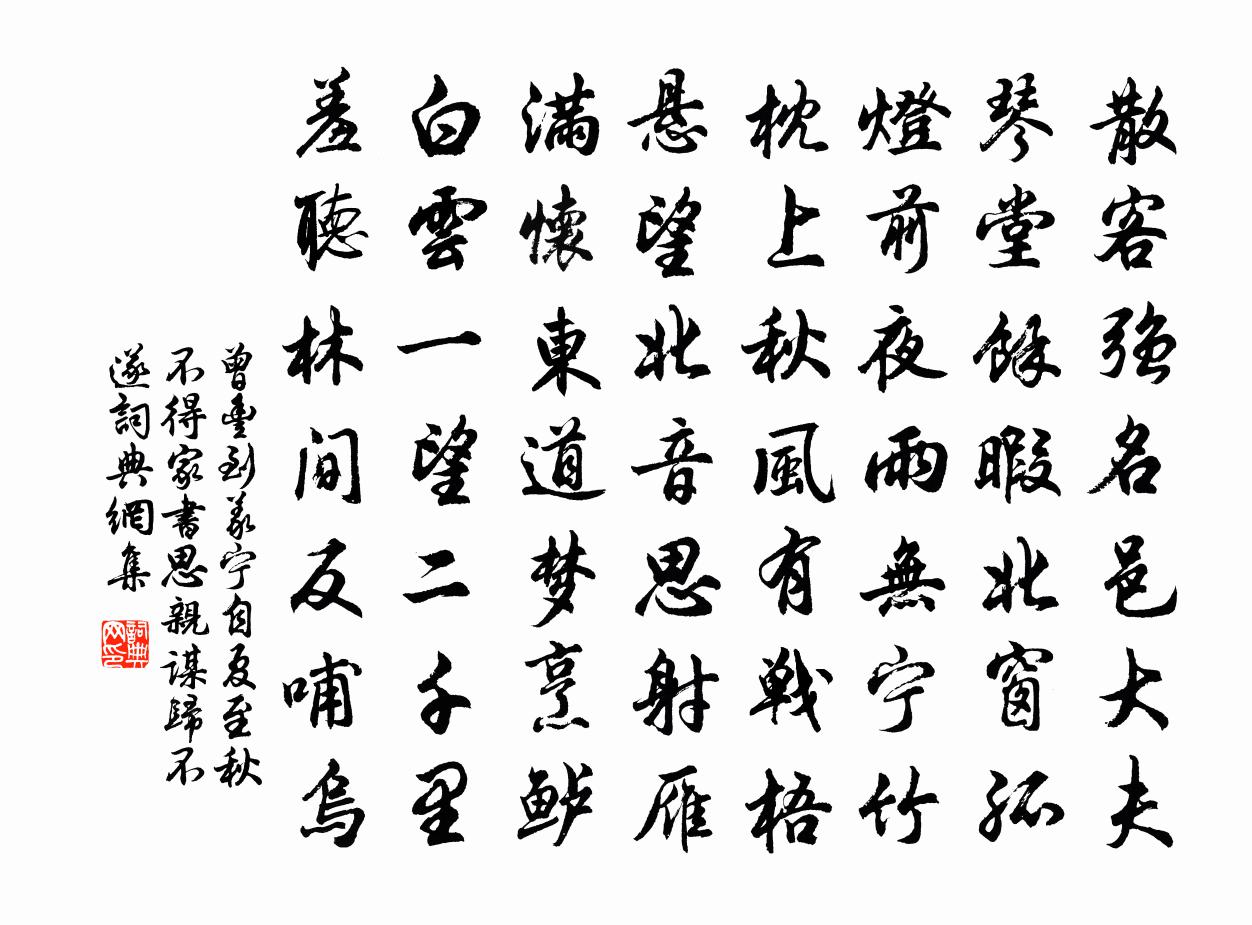 散客強名邑大夫
琴堂餘暇北窗孤
燈前夜雨無宁竹
枕上秋風有戦梧
悬望北音思射雁
滿懷東道梦烹鲈
白雲一望二千里
羞聽林間反哺烏
曾豊到義宁自夏至秋
不得家書思親謀歸不
遂詞典網集
詞典
网印